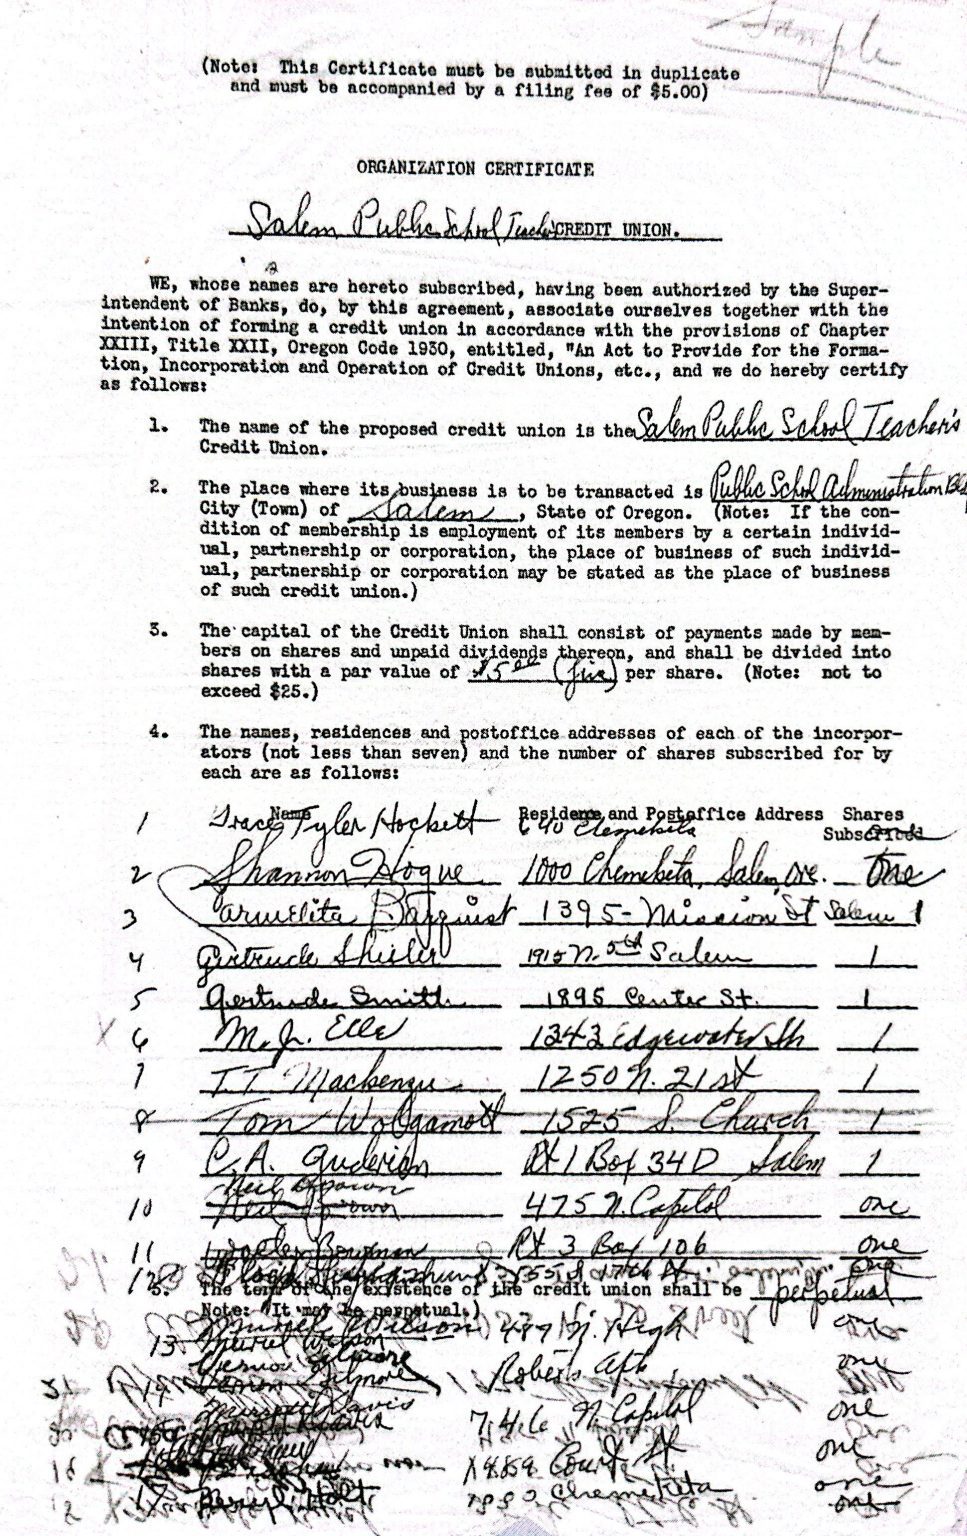 Sample
(Note: This Certificate must be submitted in duplicate
and must be accompanied by a filing fee of $5.00)
ORGANIZATION CERTIFICATE
Salem Public School Teacher's CREDIT UNION.
WE, whose names are hereto subscribed, having been authorized by the Super-
intendent of Banks, do, by this agreement, associate ourselves together with the
intention of forming a credit union in accordance with the provisions of Chapter
XXIII, Title XXII, Oregon Code 1930, entitled, "An Act to Provide for the Forma-
tion, Incorporation and Operation of Credit Unions, etc., and we do hereby certify
as follows:
1. The name of the proposed credit union is the Salem Public School Teacher's
Credit Union.
2. The place where its business is to be transacted is Public School Administration Bldg
City (Town) of Salem, State of Oregon. (Note: If the con-
dition of membership is employment of its members by a certain individ-
ual, partnership or corporation, the place of business of such individ-
ual, partnership or corporation may be stated as the place of business
of such credit union.)
3. The capital of the Credit Union shall consist of payments made by mem-
bers on shares and unpaid dividends thereon, and shall be divided into
shares with a par value of $5.00 (five) per share. (Note: not to
exceed $25.)
4. The names, residences and postoffice addresses of each of the incorpor-
ators (not less than seven) and the number of shares subscribed for by
each are as follows:
Name Residence and Postoffice Address Shares
Subscribed
1 Grace Tyler Hockett 640 Chemeketa one
2 Shannon Hogue 1000 Chemeketa, Salem, Ore. One
3 Carmelita Barquist 1395 - Mission St Salem 1
4 Gertrude Shisler 1915 N. 5th Salem 1
5 Gertrude Smith 1895 Center St. 1
6 M. J. Elle 1343 Edgewater St 1
7 T.T. Mackenzie 1250 N. 21st 1
8 Tom Wolgamott 1525 S. Church 1
9 C. A. Guderian Rt 1 Box 34D Salem 1
Neil Brown
10 Neil Brown 475 N. Capitol one
11 Bowman Rt 3 Box 106 one
12 Floyd 2855 S 17th St. one
5. The term of the existence of the credit union shall be perpetual
Note: "It may be perpetual.)
Muriel Wilson 487 N. High one
13 Muriel Wilson
Vernon Gilmore Roberts Apt one
14 Vernon Gilmore
Margaret Davis 746 N. Capitol one
Court St one
17 Beryl Holt Chemeketa one
one